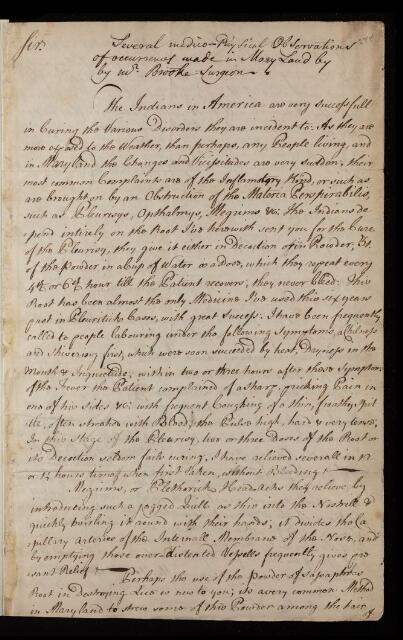 Sir
Several medico-Physical Observations
of occurrences made in Mary Land by
by mr. Brooke Surgeon
The Indians in America are very successfull
in Curing the Various Disorders they are incident to: As they are
more exposed to the Weather, than perhaps, any People living, and
in Maryland the Changes and Vicissitudes are very sudden, their
most common Complaints are of the Inflamatory Kind, or such as
are brought on by an Obstruction of the Materia Perspirabilis,
such as Pleurisys, Opthalmys, Megrims &c; the Indians de
pend intirely on the Root I've herewith sent you for the Cure
of the Pleurisy, they give it either in Decoction or in Powder,
of the Powder in a Cup of Water is a dose, which they repeat every
4th or 6th hour till the Patient recovers, they never bleed: This
Root has been almost the only Medicine I've used this six years
past in Pleuritick Cases, with great Success. I have been frequently
called to people labouring under the following Symptoms, a Chilness
and Shivering first, which were soon succeeded by heat, Dryness in the
Mouth & Inquietude; within two or three hours after these Symptoms
of the Fever the Patient complained of a sharp, pricking Pain in
one of his sides &c: with frequent Coughing of a thin, frothy Spit
tle, often streaked with Blood; the Pulse high, hard & very tense;
In this Stage of the Pleurisy, two or three Doses of the Root or
its Decoction seldom fails curing; I have relieved severall in
or hours time, when first taken, without Bleeding
Megrims, or Plethorick Head-Aches they relieve, by
introducing such a jagged Quill as this into the Nostrill &
quickly twirling it round with their hands; it divides the Ca
pillary Arteries of the Internall Membrane of the Nose, and
by emptying those over-distented Vessells frequently gives pre
sent Relief
Perhaps the use of the Powder of Sassaphras
Root in Destroying Lice is new to you; its a very common Method
in Maryland to strew some of this Powder among the hair